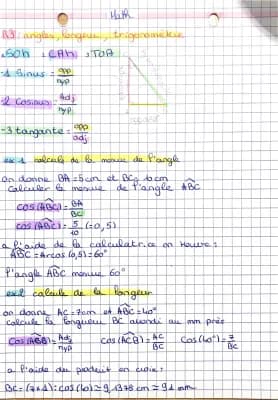 Math
A3: angles, longueur, trigonométrie
SOh : CAh : TOA
-1 Sinus = opp
hyp
-2 Cosinus = Adj
hyp
-3 tangante = opp
adj
ex 1 calcule de la mesure de l'angle
on donne BA = 5cm et BC = 10cm
Calculer la mesure de l'angle ABC
cos(ABC) = BA
BC
cos(ABC) = 5 (=0,5)
10
a l'aide de la calculatrice on trouve:
ABC = Arcos(0,5) = 60°
l'angle ABC mesure 60°
ex 2 calcule de la longeur
on donne AC = 7cm et ABC = 40°
calcule la longueur BC au mm près
Cos(ACB) = Adj cos(ACB) = AC Cos(40°) = 7
hyp BC BC
a l'aide du produit en croix:
BC = (7×1) : cos(40) ≃ 9,1378 cm ≃ 91 mm